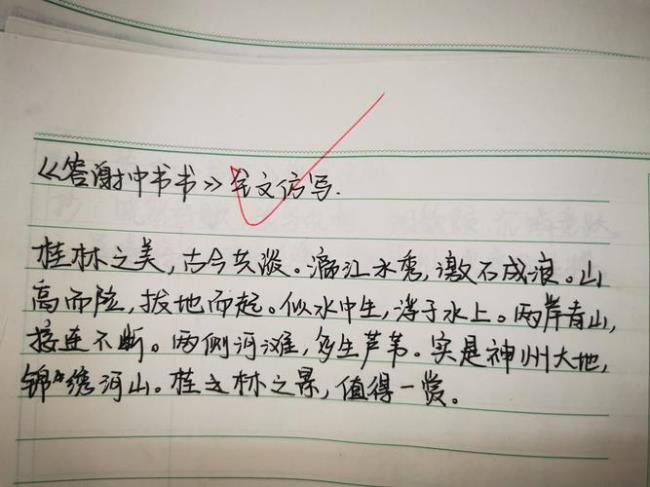 《答谢中书书》全文仿写.
桂林之美,古今共谈。漓江水秀,激石成浪。山
高而险,拔地而起。似水中生,浮于水上。两岸青山,
接连不断。两侧河滩,多生芦苇。实是神州大地,
锦绣河山。桂之林之景,值得一赏。